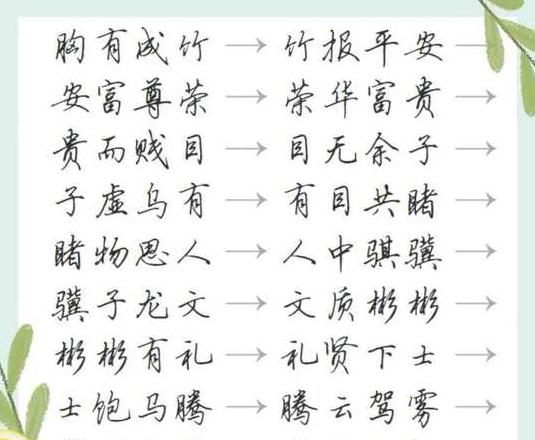 胸有成竹→竹报平安→
安富尊荣→荣华富贵→
贵而贱目→目无余子→
子虚乌有→有目共睹→
睹物思人→人中骐骥→
骥子龙文→文质彬彬→
彬彬有礼→礼贤下士→
士饱马腾→腾云驾雾→